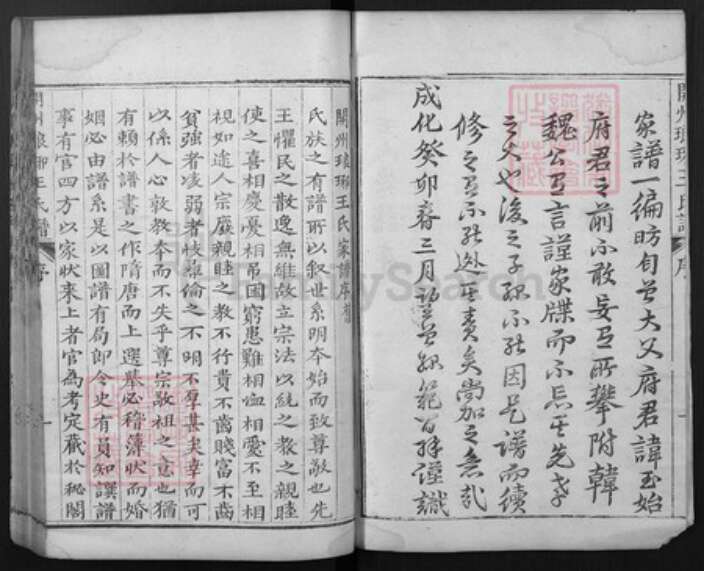 開州琅琊王氏譜 序
家譜一編昉自曾大父府君諱玉始
府君之前不敢妄有所攀附韓
魏公有言謹家牒而不忘其先者
之大也後之子孫不能因是譜而續
修之有不能逃其責矣尚加之意哉
成化癸卯春三月望曾孫範百拜謹識
開州琅琊王氏家譜序
氏族之有譜所以敘世系明本始而致尊敬也先
王懼民之散逸無維故立宗法以統之教之親睦
使之喜相慶憂相弔困窮患難相恤相愛不至相
視如途人宗廢親睦之教不行貴不齒賤富不齒
貧強者凌弱者彝倫之不明不厚甚矣幸而可
以係人心敦教本而不失乎尊宗敬祖之意也猶
有賴於譜書之作隋唐而上選舉必稽簿狀而婚
姻必由譜系是以圖譜有局郎令史有員知譔譜
事有官四方以家狀來上者官為考定藏於秘閣
開州琅琊王氏譜 序
FamilySearch